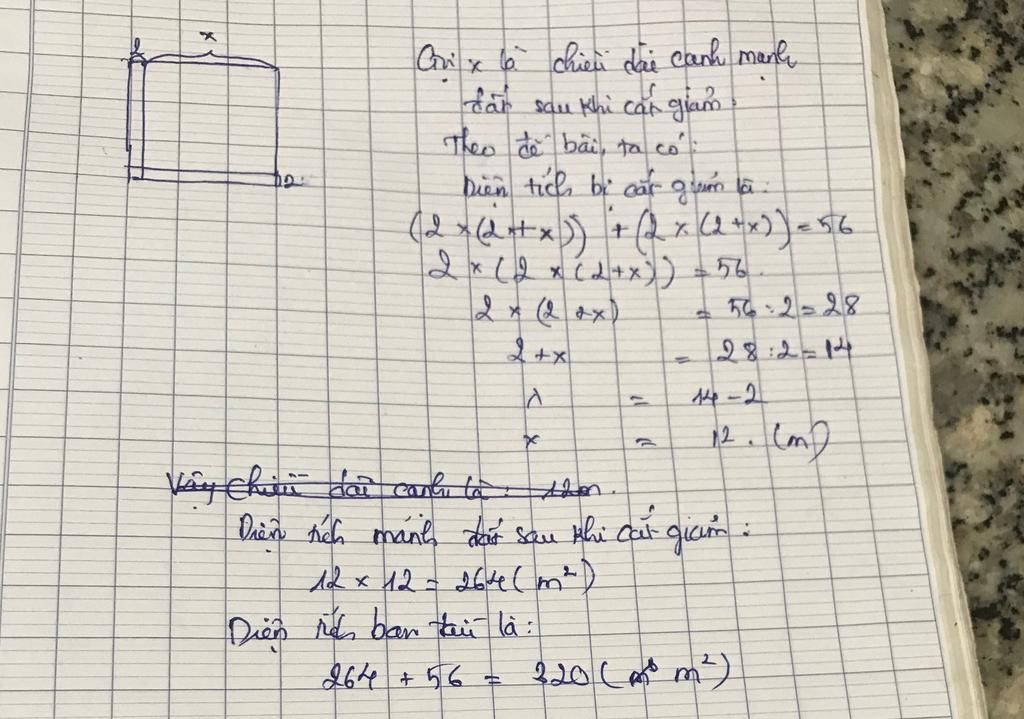 x
2
Gọi x là chiều dài cạnh mảnh
đất sau khi cắt giảm.
Theo đề bài, ta có:
Diện tích bị cắt giảm là:
(2 x (2 + x)) + (2 x (2 + x)) = 56
2 x (2 x (2 + x)) = 56.
2 x (2 + x) = 56 : 2 = 28
2 + x = 28 : 2 = 14
x = 14 - 2
x = 12. (m)
Vậy chiều dài cạnh là: 12m.
Diện tích mảnh đất sau khi cắt giảm:
12 x 12 = 264 (m²)
Diện tích ban đầu là:
264 + 56 = 320 (m² m²)